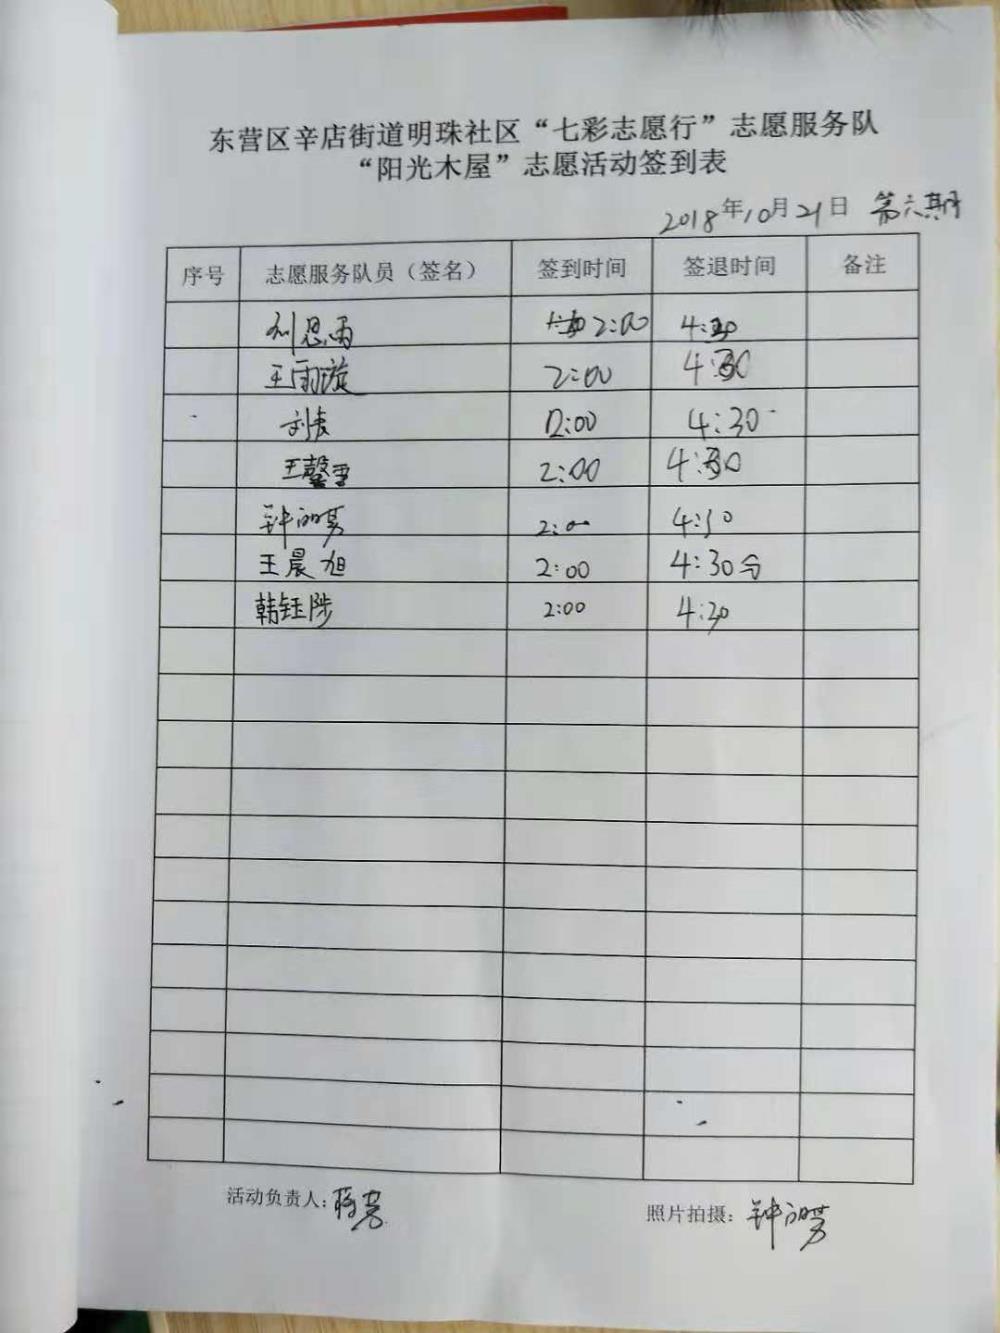 东营区辛店街道明珠社区“七彩志愿行”志愿服务队
“阳光木屋”志愿活动签到表
2018年10月21日 第六期
序号 志愿服务队员（签名） 签到时间 签退时间 备注
刘恩雨 2:00 4:30
王雨漩 2:00 4:30
2:00 4:30
王馨雪 2:00 4:30
钟 2:00 4:30
王晨旭 2:00 4:30分
韩钰陟 2:00 4:30
活动负责人：
照片拍摄：钟